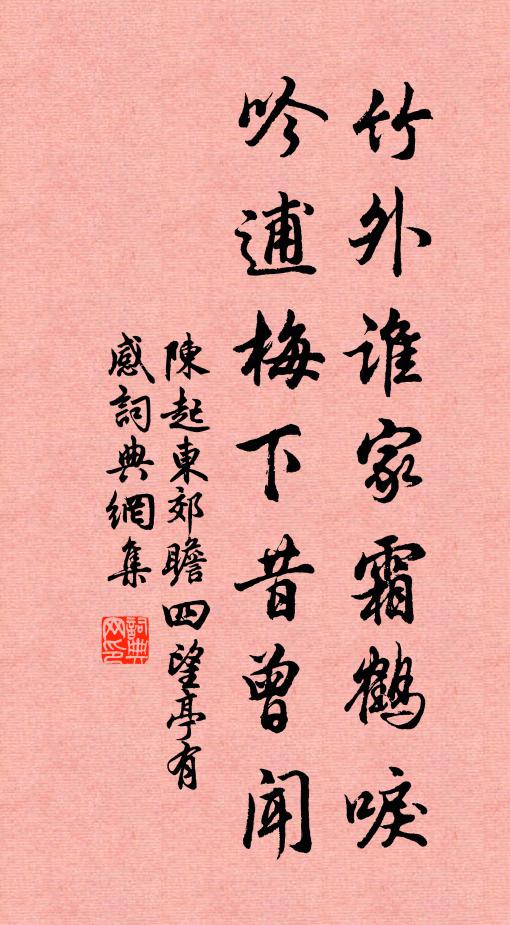 竹外誰家霜鶴唳
吟逋梅下昔曾聞
陳起東郊瞻四望亭有
感詞典網集
詞典
网印